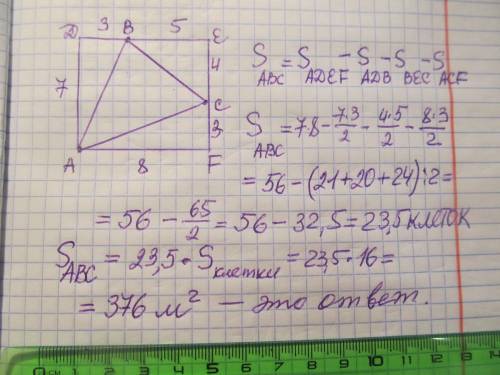 D 3 B 5 E
7
4
C
3
A 8 F
S_ABC = S_ADEF - S_ADB - S_BEC - S_ACF
S_ABC = 7·8 - 7·3/2 - 4·5/2 - 8·3/2
= 56 - (21+20+24):2 =
= 56 - 65/2 = 56 - 32,5 = 23,5 клеток
S_ABC = 23,5 · S_клетки = 23,5 · 16 =
= 376 м² — это ответ.
0 см 1 2 3 4 5 6 7 8 9 10 11 12 13 14